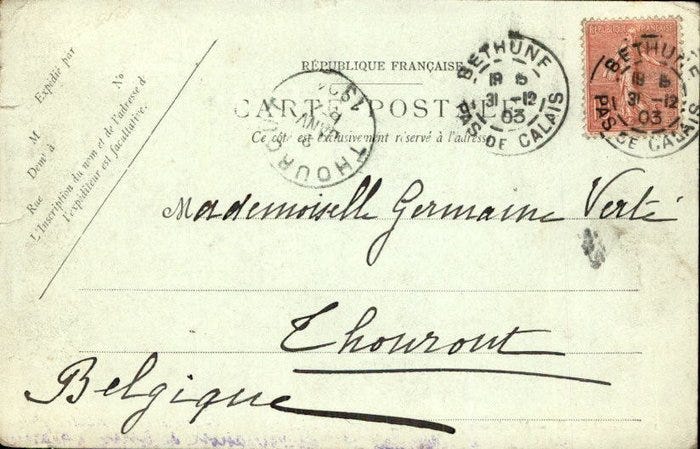 RÉPUBLIQUE FRANÇAISE
CARTE POSTALE
Ce côté est exclusivement réservé à l'adresse
Expédié par
M
Demt à
Rue No
L'Inscription du nom et de l'adresse de
l'expéditeur est facultative.
BETHUNE
19 E
31 -12
03
PAS DE CALAIS
BETHUNE
19 E
31 -12
03
PAS DE CALAIS
THOUROUT
JANV
Mademoiselle Germaine Verté
Thourout
Belgique